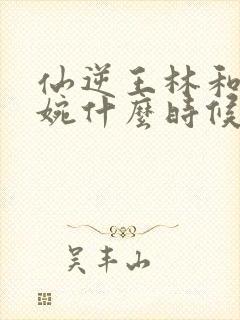 仙逆王林和
婉什麼時候
吴丰山